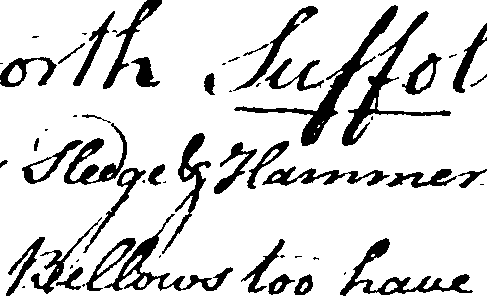 orth Suffol
Sledge & Hammer
Bellows too have